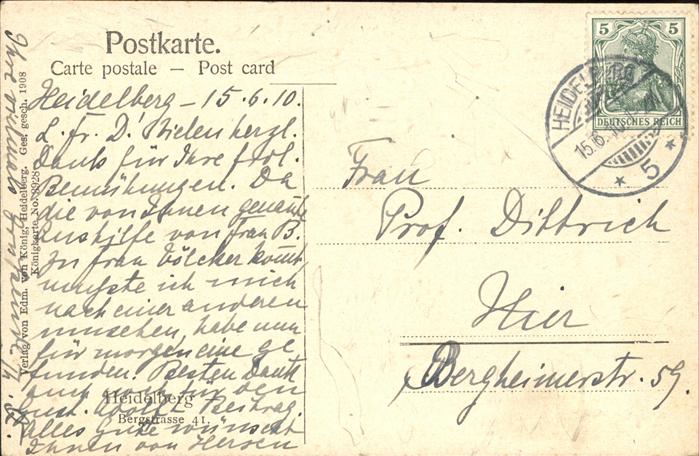 Postkarte.
Carte postale – Post card
Heidelberg – 15.6.10.
L. Fr. D! Vielen herzl.
Dank für Ihre frdl.
Bemühungen. Da
die von Ihnen genannte
Aushilfe von Frau B.
zu Frau Völcker kommt
musste ich mich
nach einer anderen
umsehen, habe nun
für morgen eine ge
funden. Besten Dank
auch für den
Gust. Adolf Beitrag.
Alles Gute wünscht
Ihnen von Herzen
Ihre
Heidelberg
Bergstrasse 41.
Verlag von Edm. von König, Heidelberg. Ges. gesch. 1908
Königkarte No.
Frau
Prof. Dittrich
Hier
Bergheimerstr. 59.
5 5
DEUTSCHES REICH
HEIDELBERG
15.6.
* 5 *